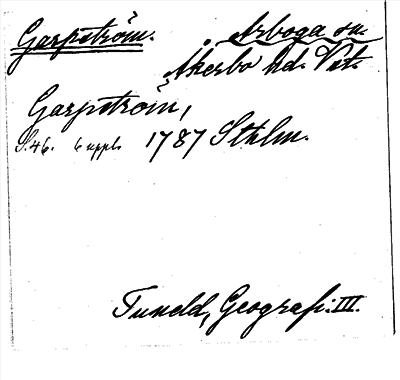 Garpström. Arboga sn.
Åkerbo hd. Vstl.
Garpström,
S. 46. 6 uppl. 1787 Sthlm.
Tuneld, Geografi. III.